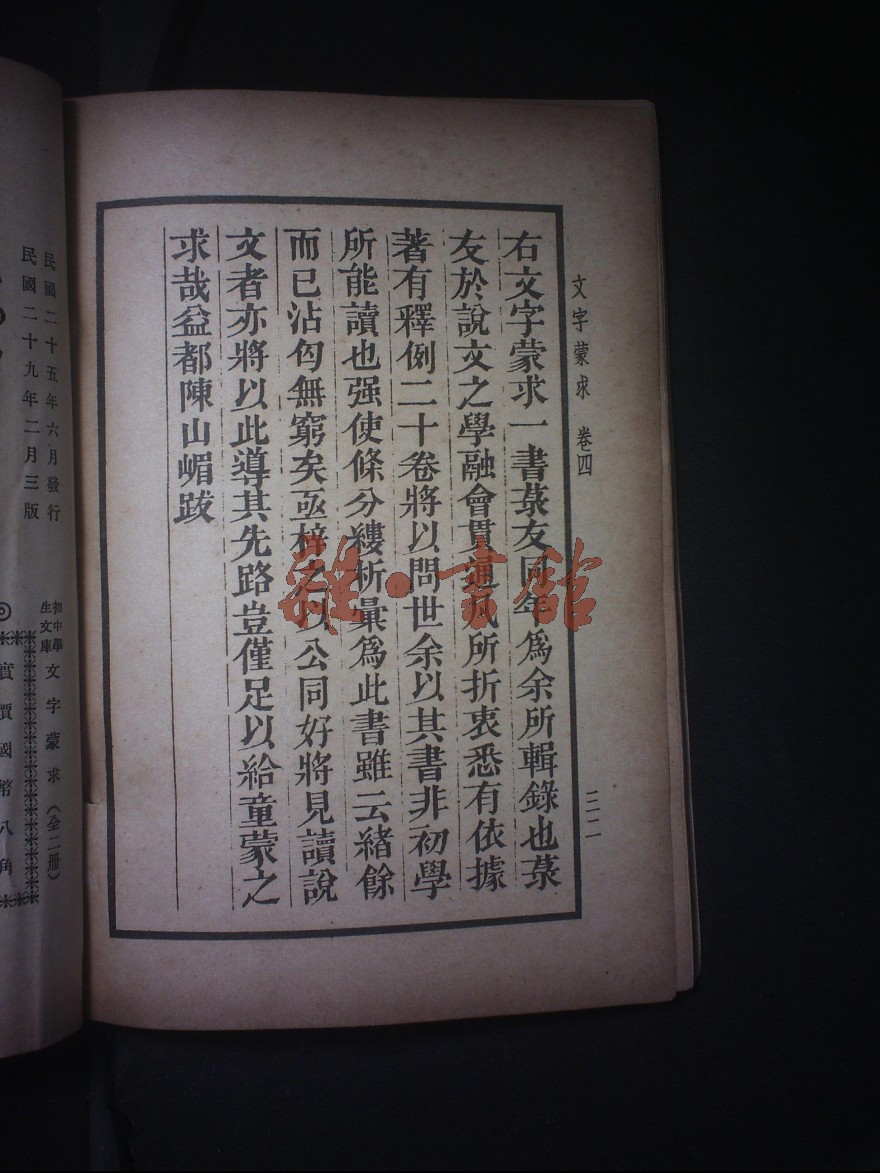 文字蒙求 卷四
三二
右文字蒙求一書菉友同年爲余所輯錄也菉
友於說文之學融會貫通凡所折衷悉有依據
著有釋例二十卷將以問世余以其書非初學
所能讀也强使條分縷析彙爲此書雖云緒餘
而已沾匄無窮矣亟梓之以公同好將見讀說
文者亦將以此導其先路豈僅足以給童蒙之
求哉益都陳山嵋跋
民國二十五年六月發行
民國二十九年二月三版
初中學
生文庫
文字蒙求(全二冊)
◎實價國幣八角
雜·書館